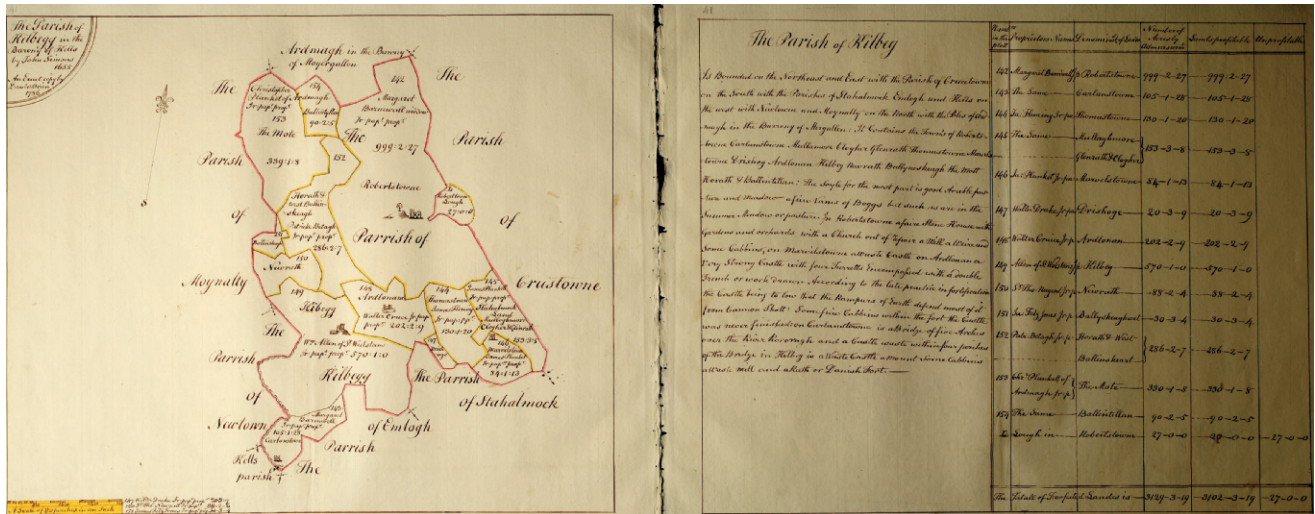 The Parish of
Kilbegg in the
Barony of Kells
by John Simons
1658
An Exact copy by
1786
Ardmagh in the Barony
of Moyergallon
The
Parish
of
Moynalty
The
Parish
of
Newtown
Kells
parish
The
Parrish
of Emlogh
The Parrish
of Stahalmock
The
Parish
of
Crustowne
Christopher
Plunket of
Ardmagh
Ir pap: prop:
153
The Mote
339:1:8
154
Ballintillan
90:2:5
The
142
Margaret
Barnwall widow
Ir pap: prop:
999:2:27
152
Robertstowne
Parrish of
Lough
27:0:0
Horath &
west Ballin-
skeagh
Patrick Betagh
Ir pap: prop:
286:2:7
151
150
Newrath
149
Kilbegg
Wm Allen of St Wolstans
Ir pap: prop: 570:1:0
148
Ardlonan
Walter Cruice Ir pap:
prop: 202:2:9
144
Thomastown
James Fleming
Ir pap: prop:
130:1:20
147
145
153:3:8
146
84:1:13
Kilbegg
143
Margaret
Barnwall
Ir pap: prop:
105:1:28
Carlanstown
The Parish of Kilbeg
Is Bounded on the Northeast and East with the Parish of Cruicetown
on the South with the Parishes of Stahalmock Emlogh and Kells on
the west with Newtown and Moynalty on the North with the Poles of Ard-
magh in the Barrony of Margallon: It Contains the Towns of Roberts-
towne Carlanstowne Mullamore Clogher Glenrath Thomastowne Marvels-
towne Drishog Ardlonan Kilbeg Newrath Ballyneskeagh the Mott
Horath & Ballintillan: The Soyle for the most part is good Arable pas-
ture and meadow a few veines of Boggs but such as are in the
Summer Meadow or pasture. In Robertstowne a faire Stone House with
gardens and orchards with a Church out of repair a Mill a Weir and
Some Cabbins, on Marvelstown a waste Castle on Ardlonan a
very Strong Castle with four Turretts Encompassed with a double
Trench or work drawn According to the late practice in fortification
the Castle being so low that the Rampers of Earth defend most of it
from Cannon Shott: Some few Cabbins within the fort the Castle
was never finished on Carlanstowne is a Bridge of five Arches
over the River Rorovagh and a Castle waste within four perches
of the Bridge in Kilbeg is a Waste Castle a mount Some Cabbins
a waste mill and a Rath or Danish Fort.
Numb: in the plott Proprietors Names Denominats of Lands Number of Acres by Admeasurmt Lands profitable Unprofitable
142 Margaret Barnwall Ir p Robertstowne 999-2-27 999-2-27
143 The Same Carlanstown 105-1-28 105-1-28
144 Ja: Fleming Ir pa Thomastowne 130-1-20 130-1-20
145 The Same Mullaghmore
Glenrath & Clogher 153-3-8 153-3-8
146 Ja: Plunket Ir pa Marvelstowne 84-1-13 84-1-13
147 Walter Drake Ir pa Drishoge 20-3-9 20-3-9
148 Walter Cruice Ir p Ardlonan 202-2-9 202-2-9
149 Allen of St Wolstans Ir p Kilbeg 570-1-0 570-1-0
150 Ir p Newrath 88-2-4 88-2-4
151 Ir pa Ballyskeaghart 30-3-4 30-3-4
152 Patk Betagh Ir pa Horath & West
Ballinskeart 286-2-7 286-2-7
153 Chr: Plunkett of
Ardmagh Ir p The Mote 330-1-8 330-1-8
154 The Same Ballintillan 90-2-5 90-2-5
Lough in Robertstowne 27-0-0 27-0-0
The Totall of Forfeited Landes is 3129-3-19 3102-3-19 27-0-0